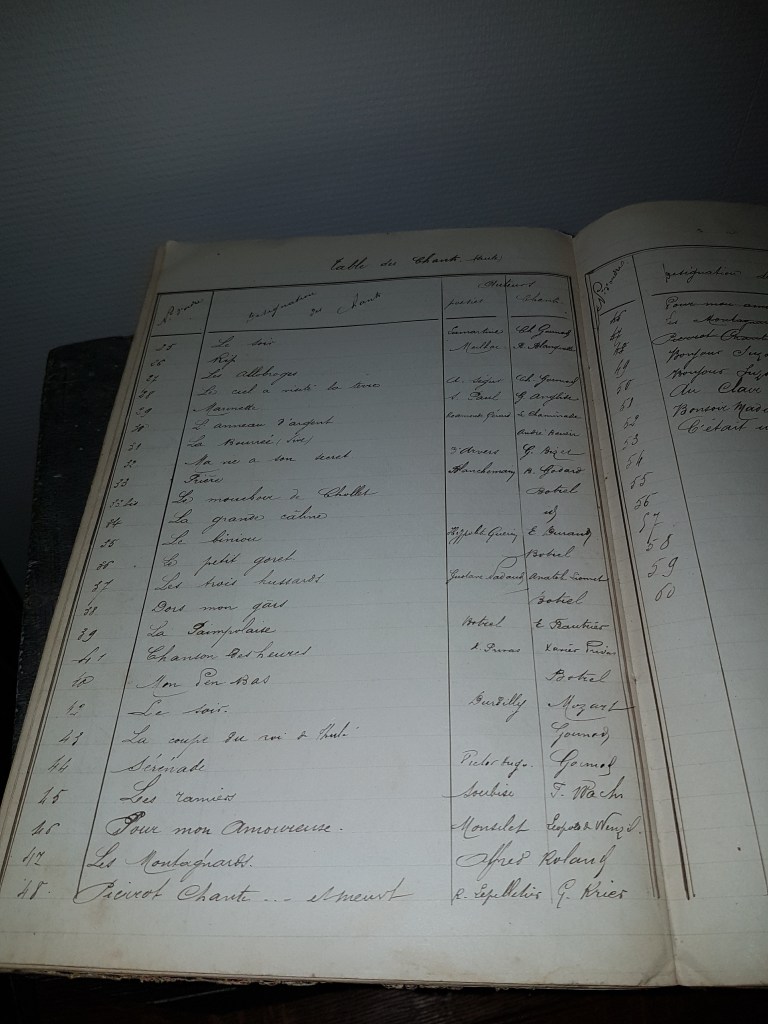 Table des Chants (suite)
N° d'ordre Désignation des Chants Auteurs
poésies Chants
25 Le soir Lamartine Ch. Gounod
26 Rip R. Planquette
27 Les Allobroges
28 Le ciel a visité la terre A. Ségur Ch. Gounod
29 Marinette
30 L'anneau d'argent C. Chaminade
31 La Bourrée
32 Ma vie a son secret d'Arvers G. Bizet
33 Frère B. Godard
33 bis Le mouchoir de Chollet Botrel
34 La grande câline id
35 Le biniou Hippolyte Guérin E. Durand
36 Le petit goret Botrel
37 Les trois hussards Gustave Nadaud
38 Dors mon gârs Botrel
39 La Paimpolaise Botrel E. Feautrier
41 Chanson des heures X. Privas Xavier Privas
40 Mon P'en Bas Botrel
42 Le soir. Burdilly Mozart
43 La coupe du roi de Thulé Gounod
44 Sérénade Victor Hugo. Gounod
45 Les ramiers Soubise
46 Pour mon Amoureuse. Monselet Léopold de Wenzel.
47 Les Montagnards. Alfred Roland
48. Pierrot Chante ... et meurt E. Lepelletier G. Krier
N° d'ordre Désignation
46 Pour mon
47 Les Montagnards
48 Pierrot Chante
49 Bonjour Suzon
50 Bonjour
51 Au Clair
52 Bonsoir
53 C'était
54
55
56
57
58
59
60